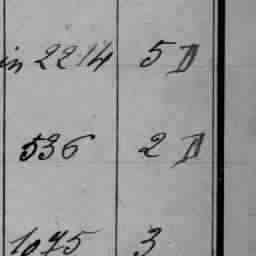 in 2214 5 D
536 2 D
1075 3